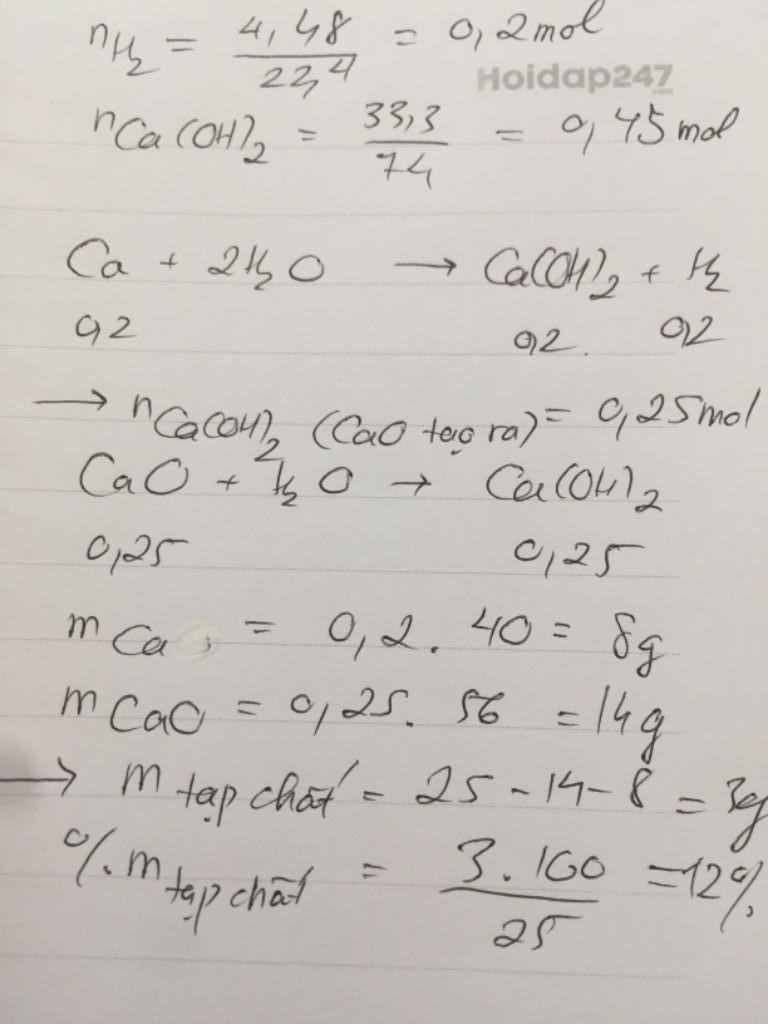 nH2 = 4,48 / 22,4 = 0,2 mol
Hoidap247.com
nCa(OH)2 = 33,3 / 74 = 0,45 mol
Ca + 2H2O → Ca(OH)2 + H2
0,2 0,2. 0,2
→ nCa(OH)2 (CaO tạo ra) = 0,25 mol
CaO + H2O → Ca(OH)2
0,25 0,25
mCa = 0,2. 40 = 8g
mCaO = 0,25. 56 = 14g
→ m tạp chất = 25 - 14 - 8 = 3g
%m tạp chất = 3.100 / 25 = 12%